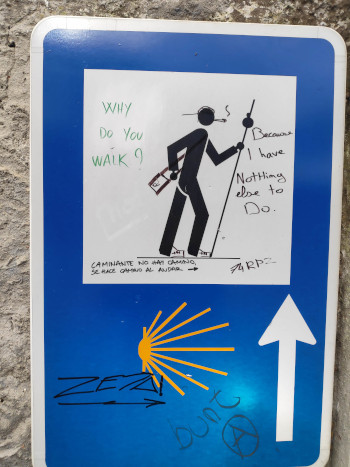 WHY
DO YOU
WALK?
Because
I have
Nothing
else to
Do.
CAMINANTE NO HAY CAMINO,
SE HACE CAMINO AL ANDAR →